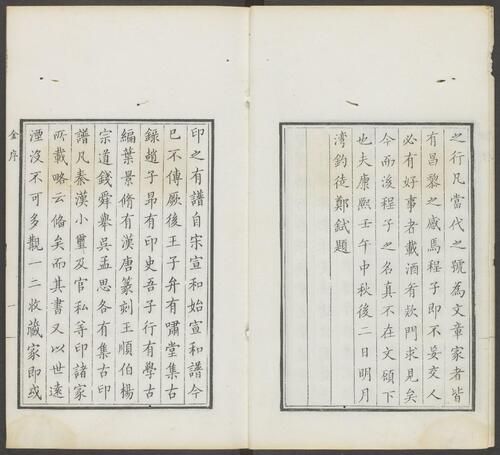 之行凡當代之號為文章家者皆
有昌黎之感焉程子即不妄交人
必有好事者載酒肴欵門求見矣
今而後程子之名真不在文碩下
也夫康熙壬午中秋後二日明月
湾釣徒鄭鉽題
印之有譜自宋宣和始宣和譜今
已不傳厥後王子弁有嘯堂集古
錄趙子昂有印史吾子行有學古
編葉景脩有漢唐篆刻王順伯楊
宗道錢舜舉吳孟思各有集古印
譜凡秦漢小璽及官私等印諸家
所載略云俻矣而其書又以世遠
湮沒不可多覯一二收藏家即或
金序
一